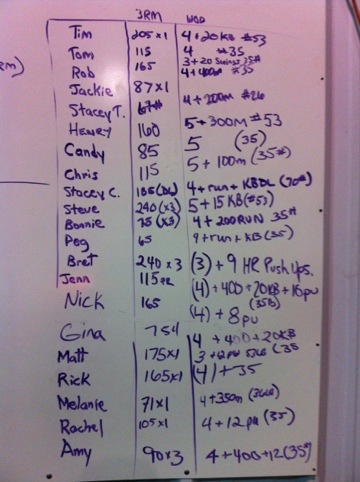 3RM WOD
RM)
Tim 205 x 1 4 + 20 KB #53
Tom 115 4 #35
Rob 165 3 + 20 Swings 35#
4 + 400m #35
Jackie 87 x 1
Stacey T. 67# 4 + 200m #26
Henry 160 5 + 300M #53
Candy 85 5 (35)
Chris 115 5 + 100m (35#)
Stacey C. 185 (DL) 4 + run + KBDL (70#)
Steve 240 (x3) 5 + 15 KB (#53)
Bonnie 75 (x3) 4 + 200 RUN 35#
Peg 65 4 + run + KB (35)
Bret 240 x 3 (3) + 9 HR Push Ups.
Jenn 115 PR (4) + 400 + 20KB + 16 pu
(35lb)
Nick 165 (4) + 8 pu
Gina 75# 4 + 400 + 20KB
Matt 175 x 1 3 + 12 pu (35
Rick 165 x 1 (4) + 35
Melanie 71 x 1 4 + 350m
Rachel 105 x 1 4 + 12 pu (35)
Amy 90 x 3 4 + 400 + 12 (35#)